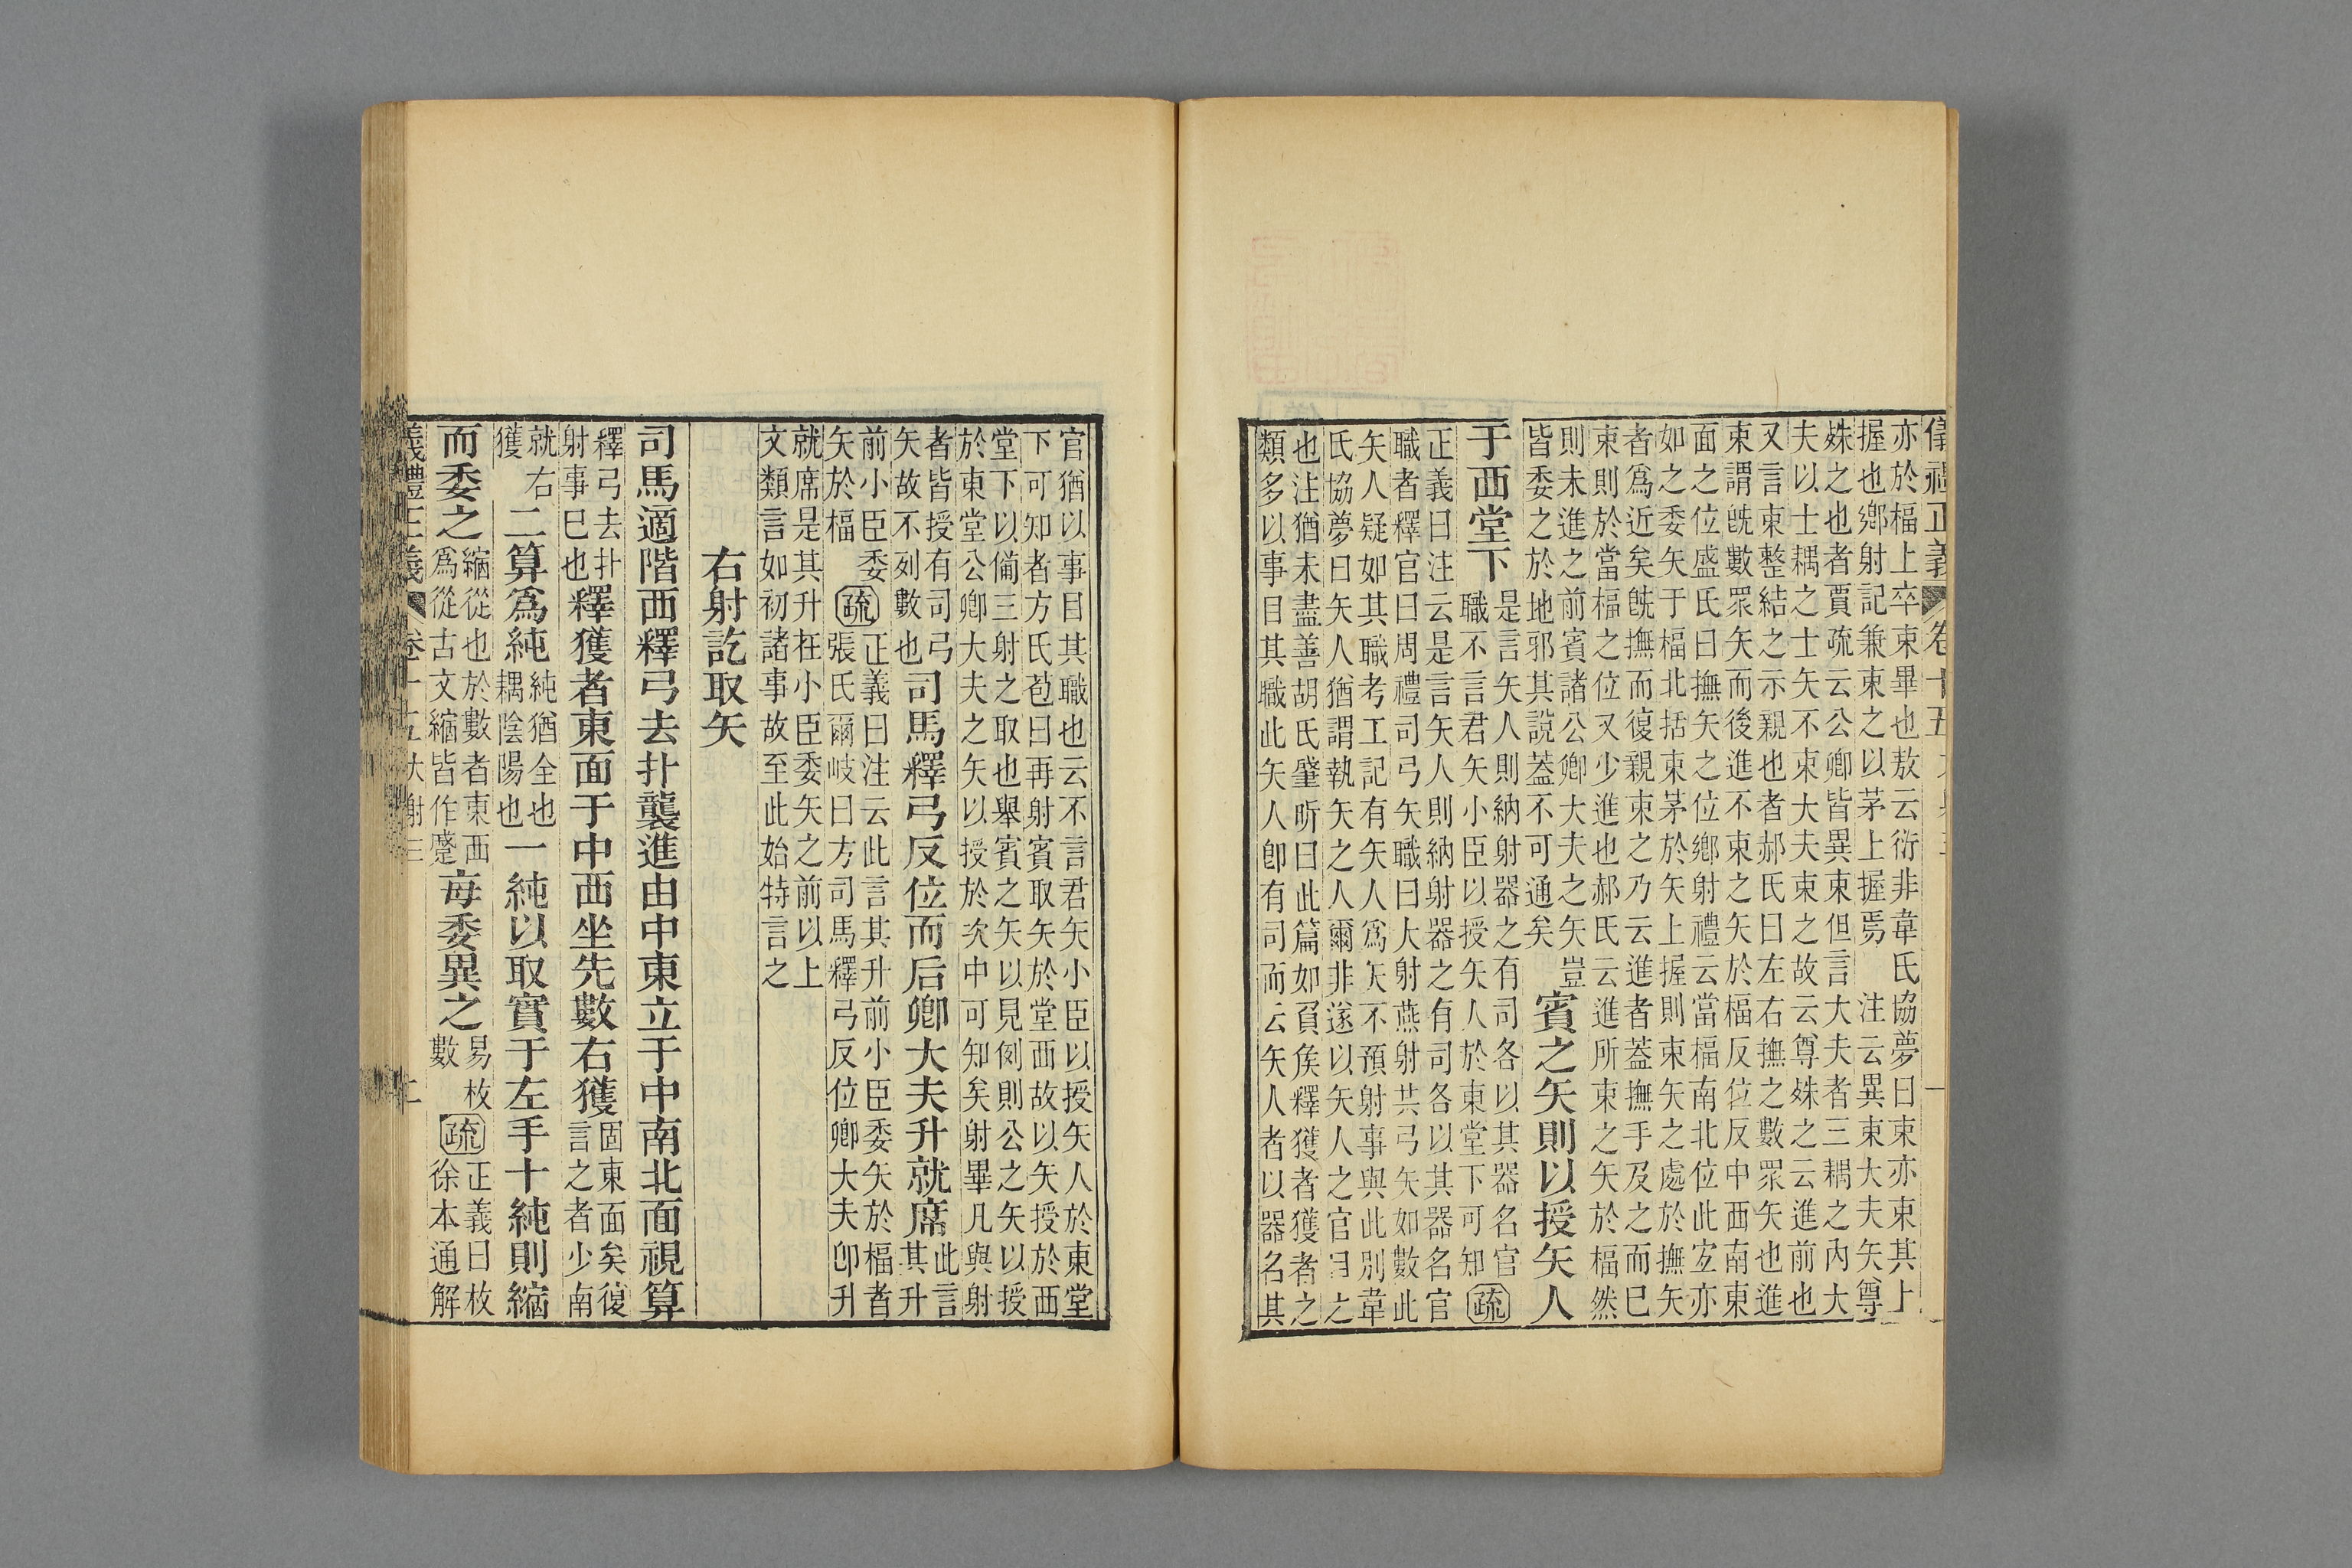 儀禮正義 卷十五
亦於楅上卒束畢也敖云衍非韋氏協夢曰束亦東其上
握也鄉射記兼束之以茅上握焉 注云異束大夫矢尊
殊之也者賈疏云公卿皆異束但言大夫者三耦之內大
夫以士耦之士矢不束大夫束之故云尊殊之云進前也
又言束整結之示親也者郝氏曰左右撫之數眾矢也進
束謂旣數眾矢而後進不束之矢於楅反位反中西南東
面之位盛氏曰撫矢之位鄉射禮云當楅南北位此宜亦
如之委矢于楅北括束茅於矢上握則束矢之處於撫矢
者爲近矣旣撫而復親束之乃云進者蓋撫手及之而已
束則於當楅之位又少進也郝氏云進所束之矢於楅然
則未進之前賓諸公卿大夫之矢豈
皆委之於地邪其說蓋不可通矣
賓之矢則以授矢人
于西堂下
是言矢人則納射器之有司各以其器名官
職不言君矢小臣以授矢人於東堂下可知
疏
正義曰注云是言矢人則納射器之有司各以其器名官
職者釋官曰周禮司弓矢職曰大射燕射共弓矢如數此
矢人疑如其職考工記有矢人爲矢不預射事與此別韋
氏協夢曰矢人猶謂執矢之人爾非遂以矢人之官目之
也注猶未盡善胡氏肇昕曰此篇如負矦釋獲者獲者之
類多以事目其職此矢人卽有司而云矢人者以器名其
官猶以事目其職也云不言君矢小臣以授矢人於東堂
下可知者方氏苞曰再射賓取矢於堂西故以矢授於西
堂下以備三射之取也舉賓之矢以見例則公之矢以授
於東堂公卿大夫之矢以授於次中可知矣射畢凡與射
者皆授有司弓
矢故不列數也
司馬釋弓反位而后卿大夫升就席
此言
其升
前小臣委
矢於楅
疏
正義曰注云此言其升前小臣委矢於楅者
張氏爾岐曰方司馬釋弓反位卿大夫卽升
就席是其升在小臣委矢之前以上
文類言如初諸事故至此始特言之
右射訖取矢
司馬適階西釋弓去扑襲進由中東立于中南北面視算
釋弓去扑
射事巳也
釋獲者東面于中西坐先數右獲
固東面矣復
言之者少南
就右
獲
二算爲純
純猶全也
耦陰陽也
一純以取實于左手十純則縮
而委之
縮從也於數者東西
爲從古文縮皆作蹙
每委異之
易枚
數
疏
正義曰枚
徐本通解
儀禮正義 卷十五 大射三